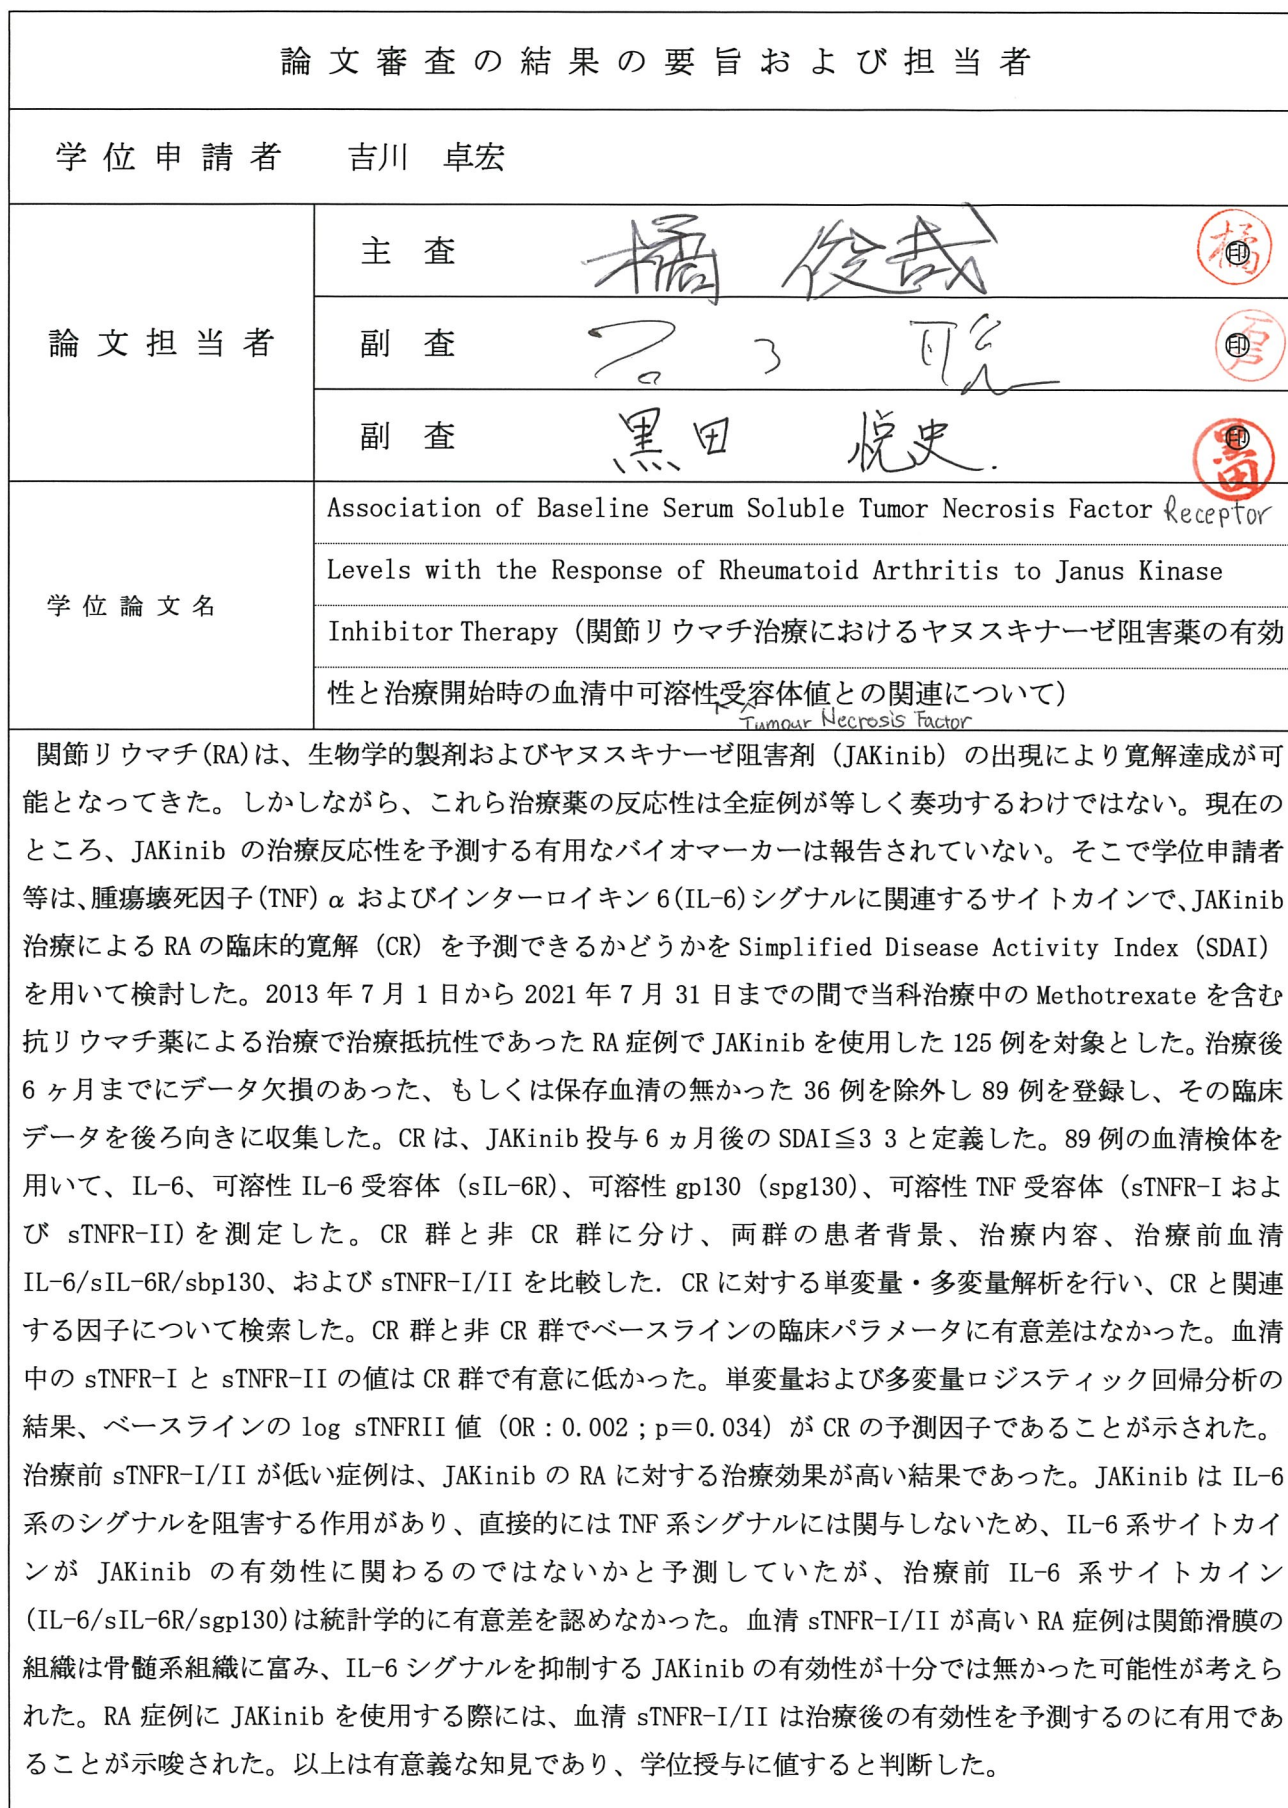 論文審査の結果の要旨および担当者
学位申請者 吉川 卓宏
論文担当者
主査 橘 俊哉 橘 印
副査 石戸 聡 石戸 印
副査 黒田 悦史. 黒田 印
学位論文名
Association of Baseline Serum Soluble Tumor Necrosis Factor Receptor
Levels with the Response of Rheumatoid Arthritis to Janus Kinase
Inhibitor Therapy（関節リウマチ治療におけるヤヌスキナーゼ阻害薬の有効
性と治療開始時の血清中可溶性受容体値との関連について）
Tumour Necrosis Factor
関節リウマチ(RA)は、生物学的製剤およびヤヌスキナーゼ阻害剤（JAKinib）の出現により寛解達成が可
能となってきた。しかしながら、これら治療薬の反応性は全症例が等しく奏功するわけではない。現在の
ところ、JAKinib の治療反応性を予測する有用なバイオマーカーは報告されていない。そこで学位申請者
等は、腫瘍壊死因子(TNF)α およびインターロイキン 6(IL-6)シグナルに関連するサイトカインで、JAKinib
治療による RA の臨床的寛解（CR）を予測できるかどうかを Simplified Disease Activity Index（SDAI）
を用いて検討した。2013 年 7 月 1 日から 2021 年 7 月 31 日までの間で当科治療中の Methotrexate を含む
抗リウマチ薬による治療で治療抵抗性であった RA 症例で JAKinib を使用した 125 例を対象とした。治療後
6 ヶ月までにデータ欠損のあった、もしくは保存血清の無かった 36 例を除外し 89 例を登録し、その臨床
データを後ろ向きに収集した。CR は、JAKinib 投与 6 ヵ月後の SDAI≦3 3 と定義した。89 例の血清検体を
用いて、IL-6、可溶性 IL-6 受容体（sIL-6R）、可溶性 gp130（spg130）、可溶性 TNF 受容体（sTNFR-I およ
び sTNFR-II）を測定した。CR 群と非 CR 群に分け、両群の患者背景、治療内容、治療前血清
IL-6/sIL-6R/sbp130、および sTNFR-I/II を比較した．CR に対する単変量・多変量解析を行い、CR と関連
する因子について検索した。CR 群と非 CR 群でベースラインの臨床パラメータに有意差はなかった。血清
中の sTNFR-I と sTNFR-II の値は CR 群で有意に低かった。単変量および多変量ロジスティック回帰分析の
結果、ベースラインの log sTNFRII 値（OR：0.002；p＝0.034）が CR の予測因子であることが示された。
治療前 sTNFR-I/II が低い症例は、JAKinib の RA に対する治療効果が高い結果であった。JAKinib は IL-6
系のシグナルを阻害する作用があり、直接的には TNF 系シグナルには関与しないため、IL-6 系サイトカイ
ンが JAKinib の有効性に関わるのではないかと予測していたが、治療前 IL-6 系サイトカイン
(IL-6/sIL-6R/sgp130)は統計学的に有意差を認めなかった。血清 sTNFR-I/II が高い RA 症例は関節滑膜の
組織は骨髄系組織に富み、IL-6 シグナルを抑制する JAKinib の有効性が十分では無かった可能性が考えら
れた。RA 症例に JAKinib を使用する際には、血清 sTNFR-I/II は治療後の有効性を予測するのに有用であ
ることが示唆された。以上は有意義な知見であり、学位授与に値すると判断した。